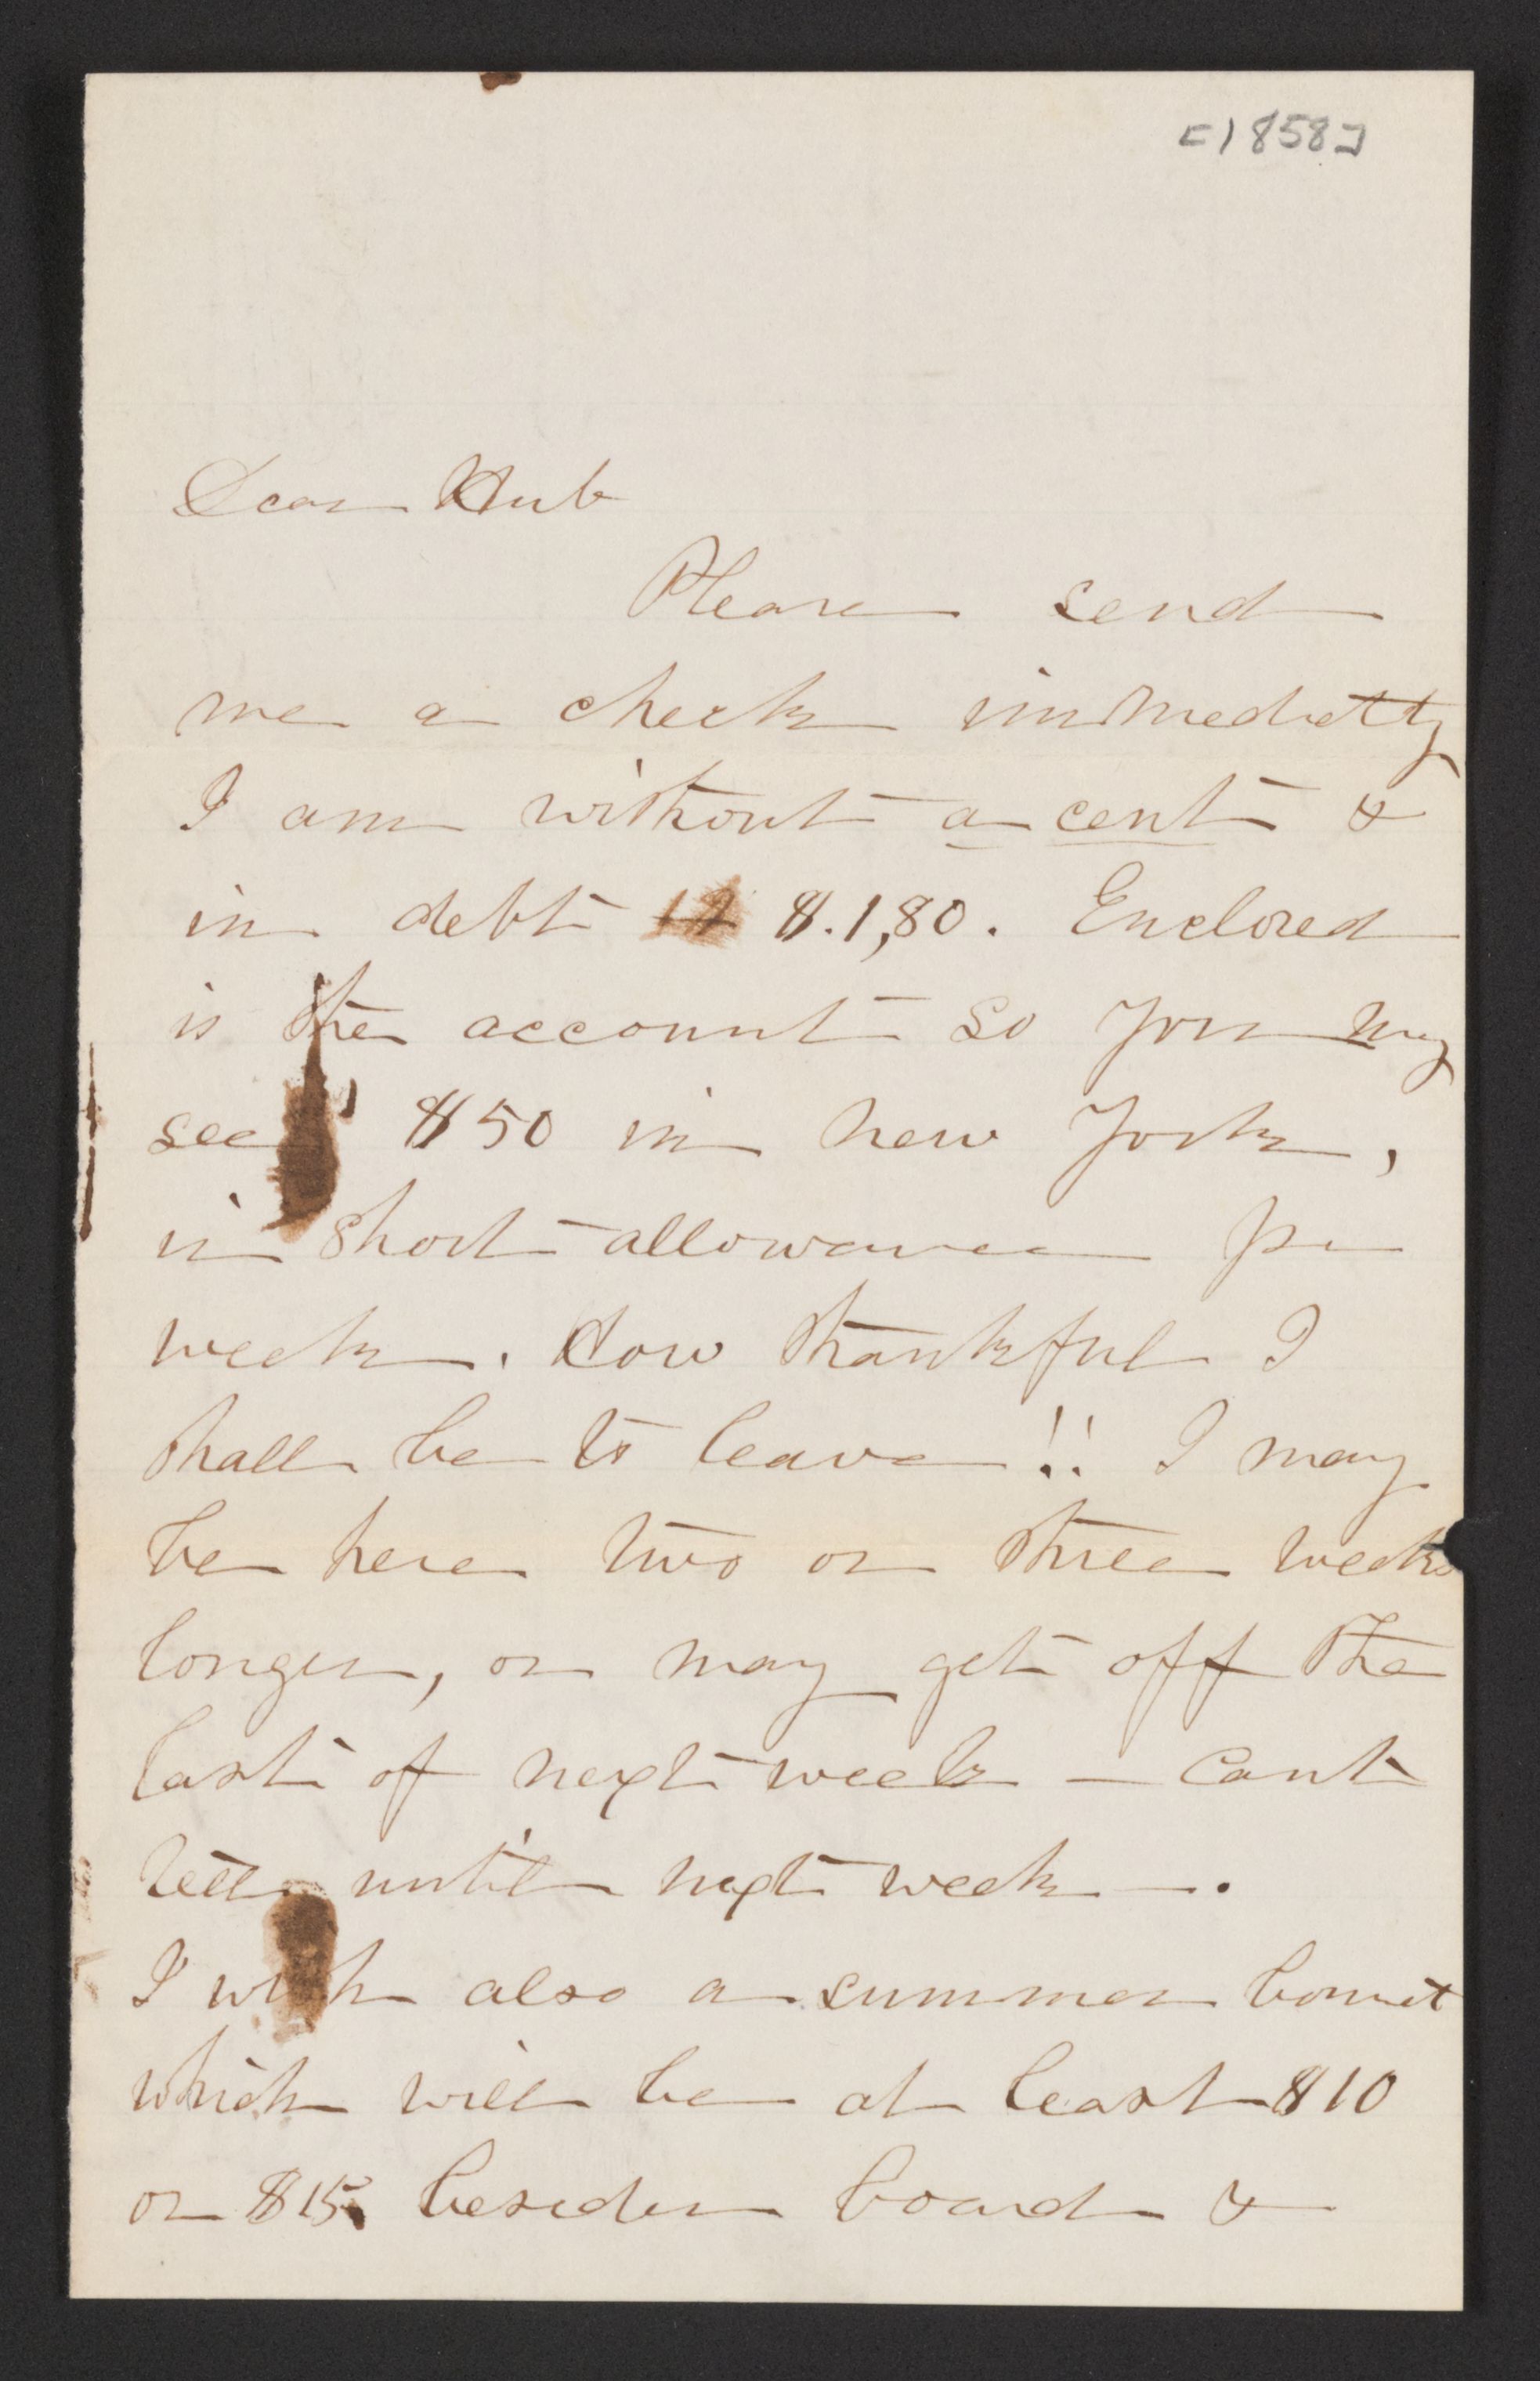 [1858]
Dear Hub
Please send
me a check immediatly
I am without a cent &
in debt 12 $.1,80. Enclosed
is the account so you may
see $50 in new York,
is short allowance per
week. How thankful I
shall be to leave!! I may
be here two or three weeks
longer, or may get off the
last of next week — cant
tell until next week —.
I wish also a summer bonnet
which will be at least $10
or $15, besides board &